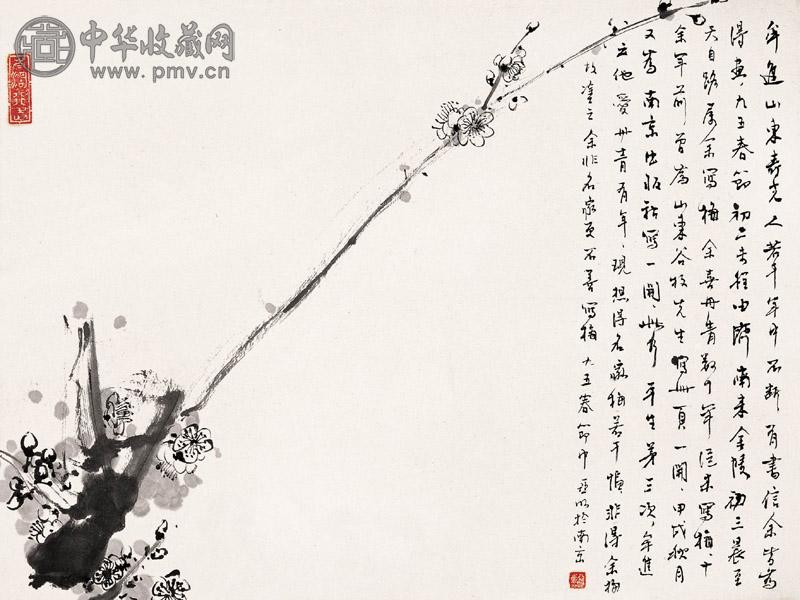 中华收藏网
www.pmv.cn
牟進山東壽光人若干年中不断有書信余皆
得画,九五春節初二专程由濟南来金陵初三晨至
天目路属余寫梅 余喜丹青数十年從未寫梅,十
余年前曾為山東谷牧先生寫册頁一開,甲戌秋月
又為南京出版社寫一開,此乃平生第三次,牟進
云他愛丹青有年,現想得名家梅若干幀,非得余梅
故塗之 余非名家更不善寫梅 九五春節中亚明於南京